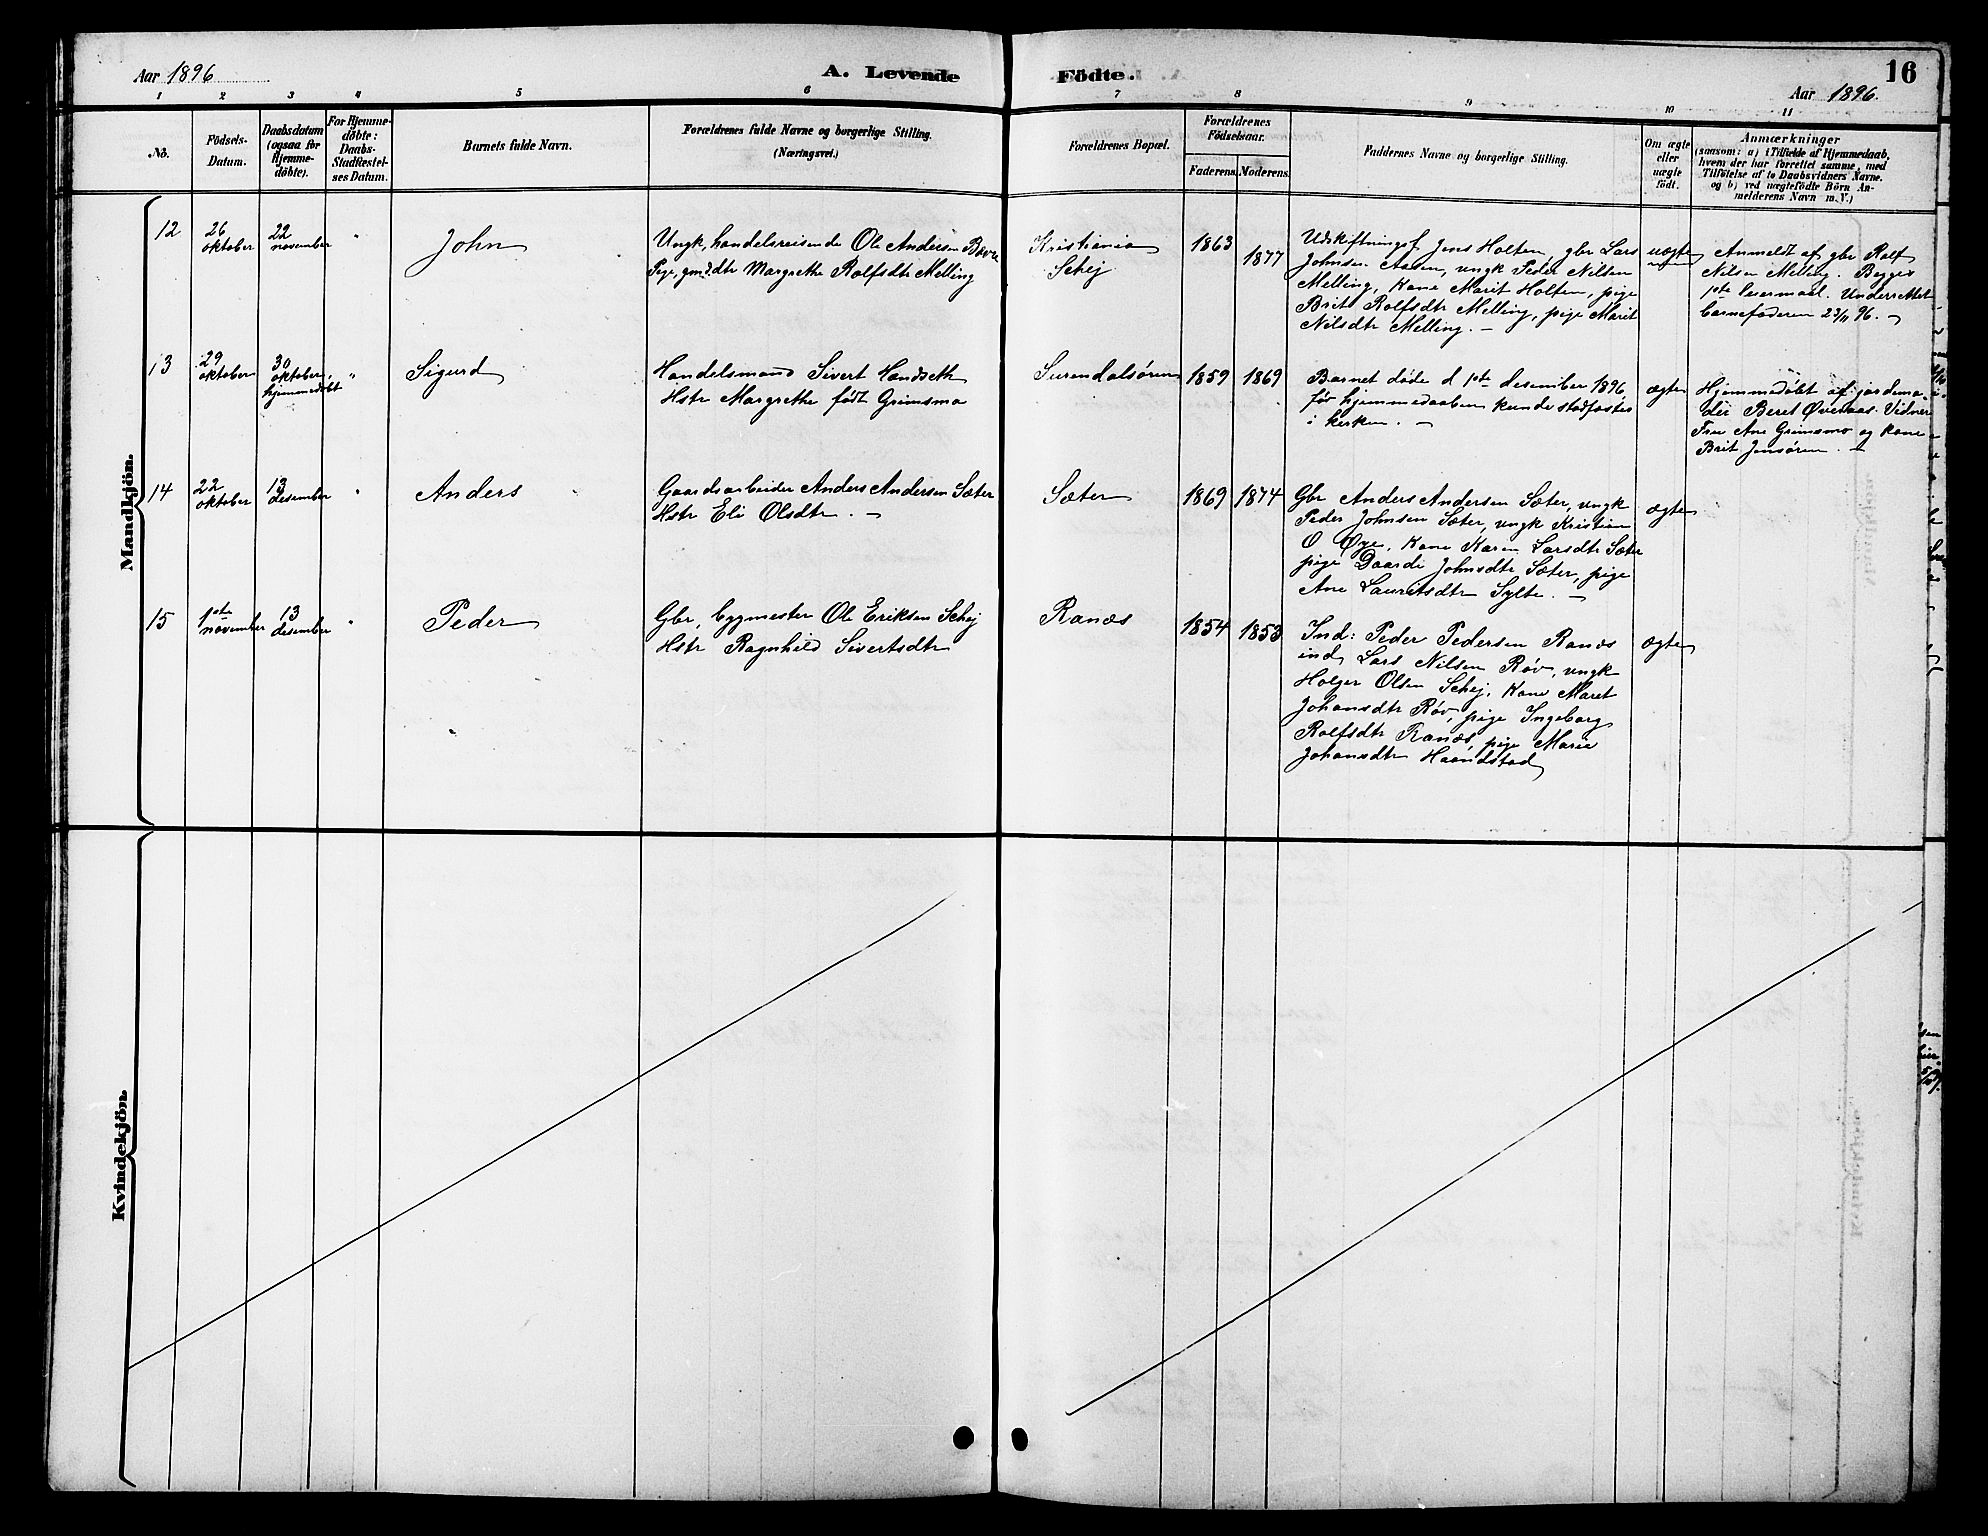 Aar 1896
A. Levende
Födte.
16
Aar 1896.
1 2 3 4 5 6 7 8 9 10 11
No.
Födsels-
Datum.
Daabsdatum
(ogsaa for
Hjemme-
døbte).
For Hjemme-
døbte:
Daabs-
Stadfæstel-
ses Datum.
Barnets fulde Navn.
Forældrenes fulde Navne og borgerlige Stilling.
(Næringsvei.)
Forældrenes Bopæl.
Forældrenes
Födselsaar.
Faderens.
Moderens.
Faddernes Navne og borgerlige Stilling.
Om ægte
eller
uægte
født.
Anmærkninger
(saasom: a) i Tilfælde af Hjemmedaab,
hvem der har forrettet samme, med
Tilföielse af to Daabsvidners Navne.
og b) ved uægtefödte Börn An-
melderens Navn m. V.)
Mandkjön.
12
26
oktober
22
november
"
John
Ungk, handelsreisende Ole Andersen Bævre
Pige, gmd.dtr Margrethe Rolfsdtr Melling
Kristiania
Schej
1863
1877
Udskiftningsf. Jens Holten, gbr Lars
Johnsen Aasen, ungk Peder Nilsen
Melling, Kone Marit Holten, pige
Brit Rolfsdtr Melling, pige Marit
Nilsdtr Melling. —
uægte
Anmeldt af gbr Rolf
Nilsen Melling. Begges
1ste leiermaal. Underrettet
barnefaderen 23/11 96. —
13
29
oktober
30
oktober,
hjemmedøbt
"
Sigurd
Handelsmand Sivert Handseth
Hstr Margrethe født Grimsmo
Surendalsøren
1859
1869
Barnet døde d 1ste desember 1896
før hjemmedaaben kunde stadfæstes
i kirken. —
ægte
Hjemmedøbt af jordemo-
der Beret Øveraas. Vidner
Fru Ane Grimsmo og kone
Brit Jensøren. —
14
22
oktober
13
desember
"
Anders
Gaardsarbeider Anders Andersen Sæter
Hstr Eli Olsdtr. —
Sæter
1869
1874
Gbr Anders Andersen Sæter, ungk
Peder Johnsen Sæter, ungk Kristian
O Øye, Kone Karen Larsdtr Sæter
pige Daarde Johnsdtr Sæter, pige
Ane Lauritsdtr Sylte. —
ægte
15
1ste
november
13
desember
"
Peder
Gbr, bygmester Ole Eriksen Schej
Hstr Ragnhild Sivertsdtr
Ranæs
1854
1853
Ind: Peder Pedersen Ranæs
ind, Lars Nilsen Røv, ungk
Holger Olsen Schej, Kone Maret
Johansdtr Røv, pige Ingeborg
Rolfsdtr Ranæs, pige Marie
Johansdtr Haandstad
ægte
Kvindekjön.